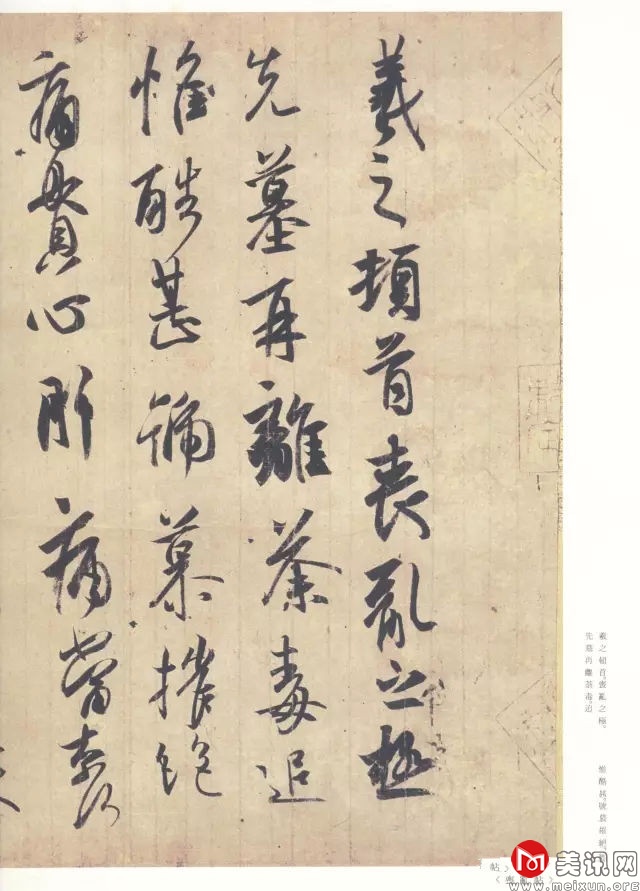 羲之頓首喪亂之極
先墓再離荼毒追
惟酷甚號慕摧絶
痛貫心肝痛當奈何
羲之頓首。喪亂之極。
先墓再離荼毒。追
惟酷甚。號慕摧絕。
帖〉
〈喪亂帖〉
美讯网
www.meixun.org